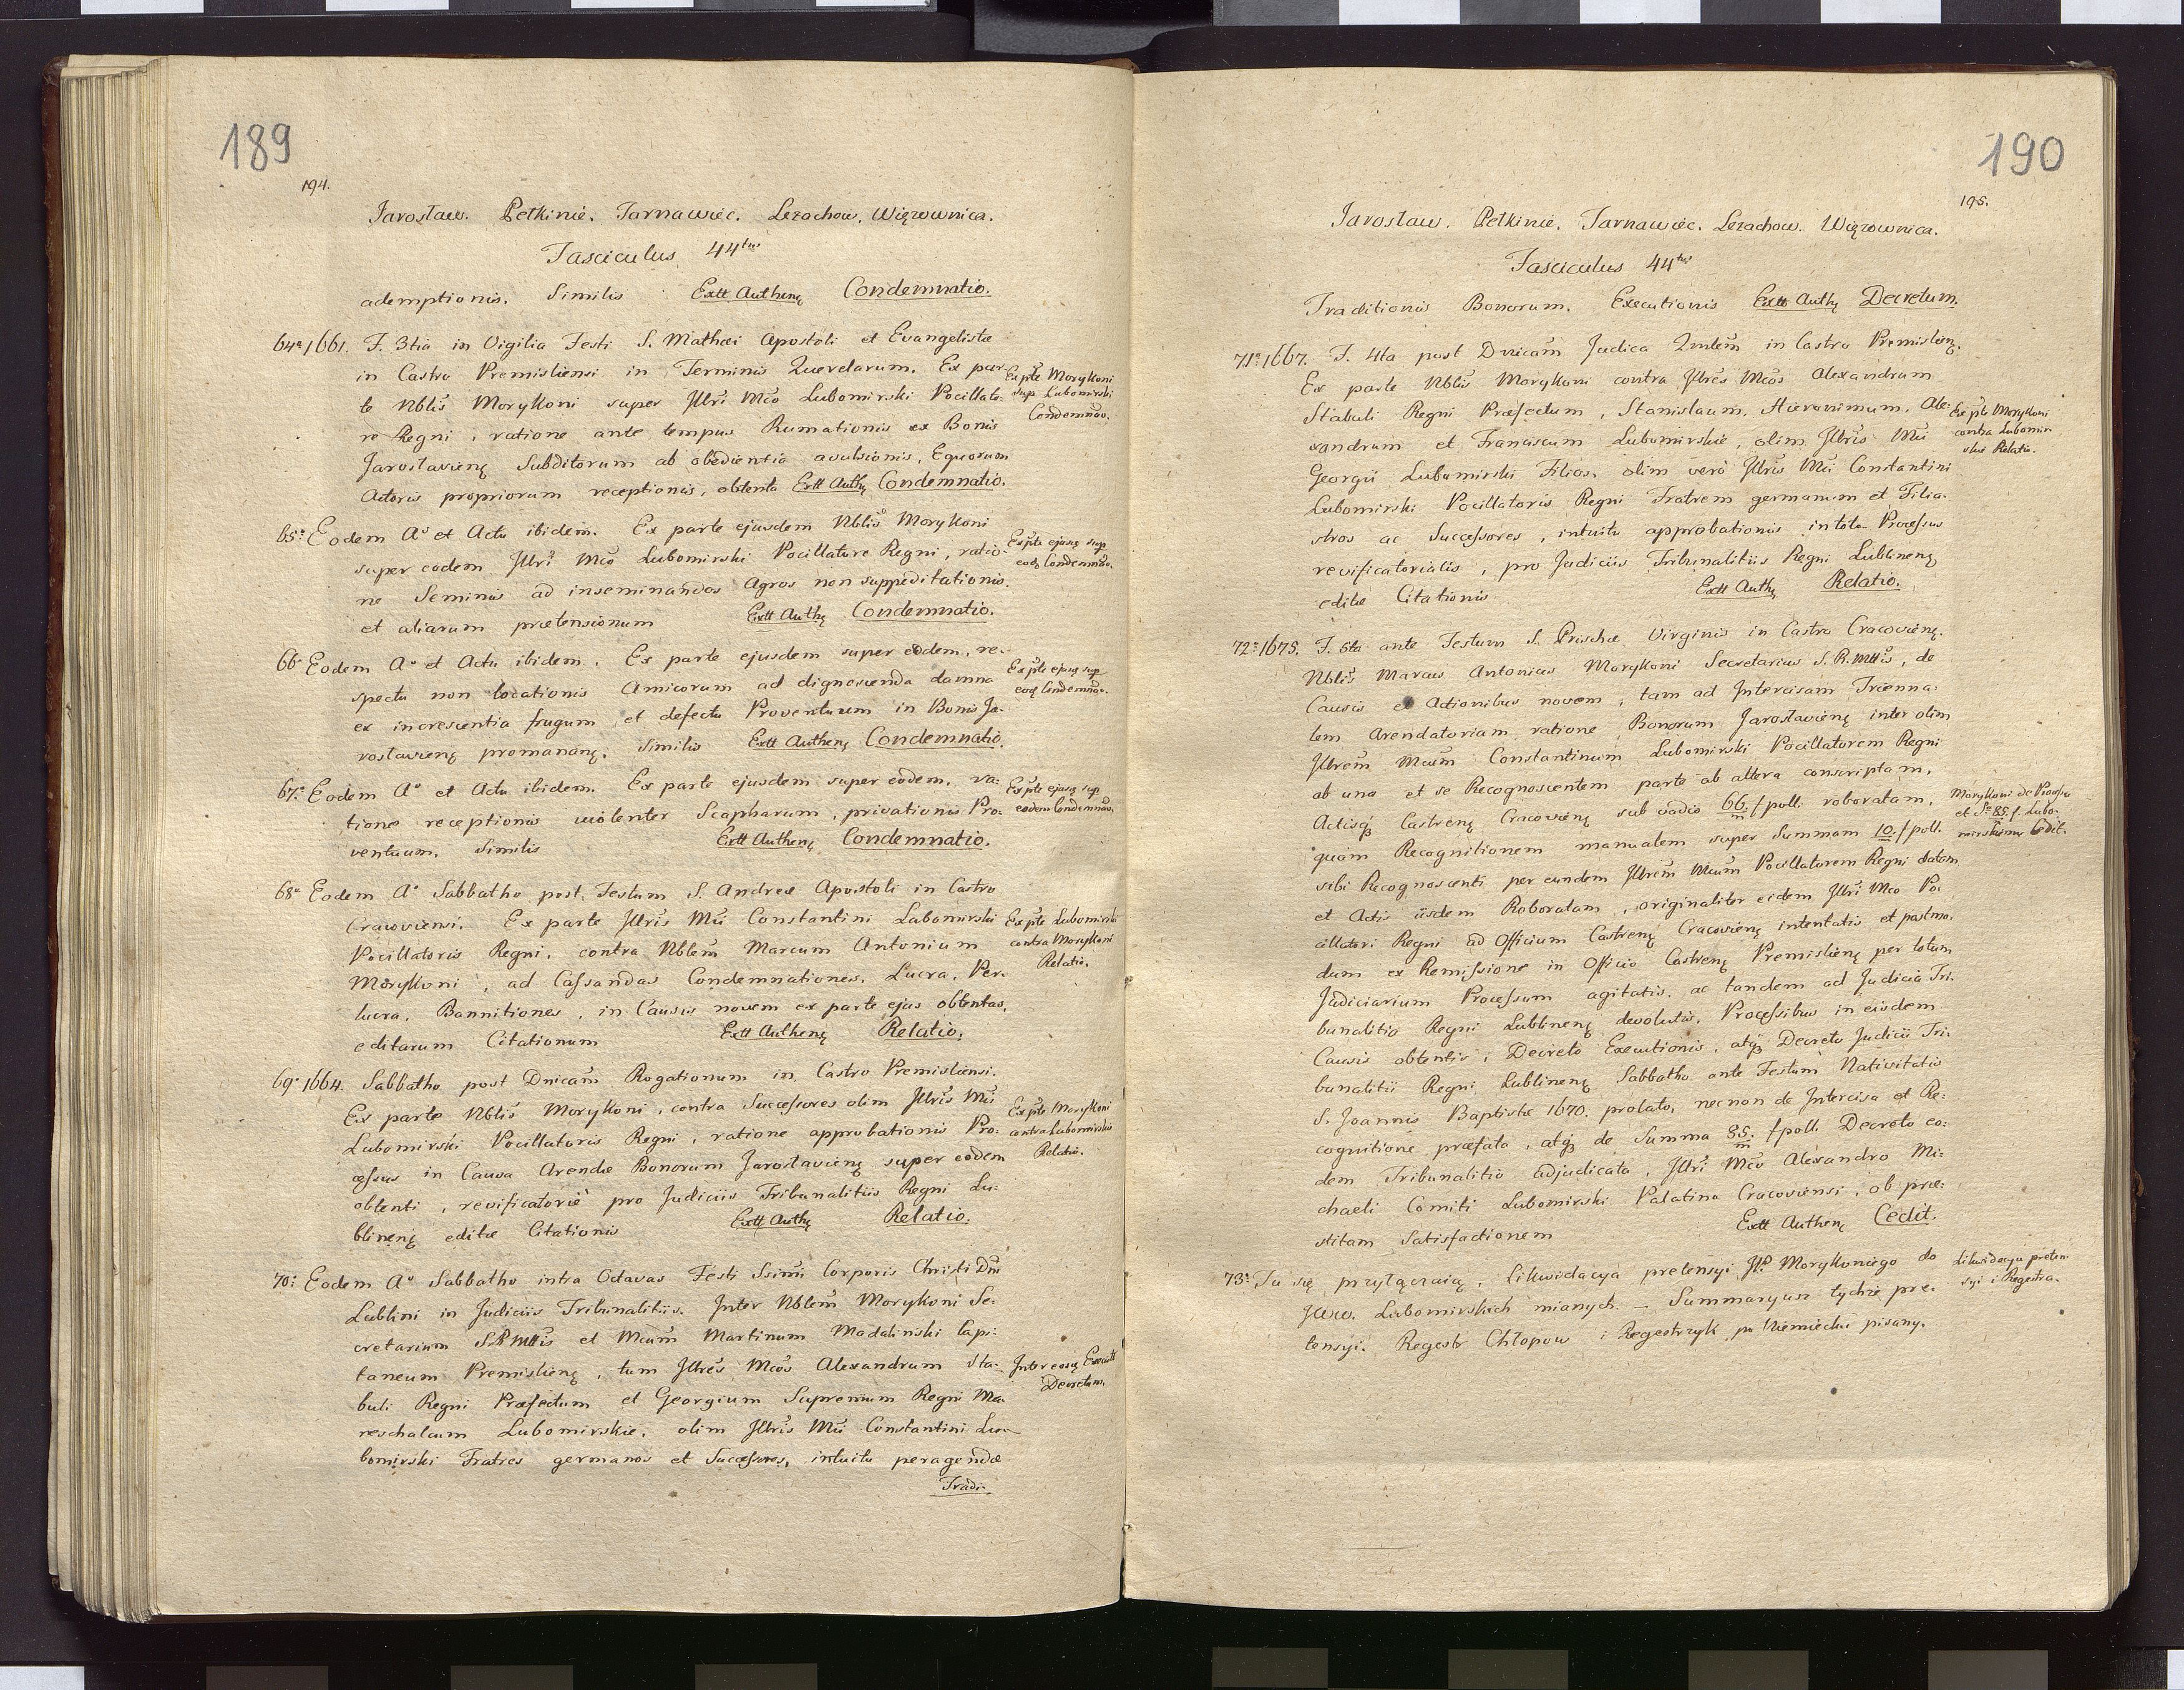 189
194.
Jarosław. Pełkinie. Tarnawiec. Leżachow. Więzownica.
Fasciculus 44tus
ademptionis. Similis Extt Authenę Condemnatio.
64a 1661. F. 3tia in Vigilia Festi S. Mathæi Apostoli et Evangelistæ
in Castro Premisliensi in Terminis Querelarum. Ex par-
te Nblis Morykoni super Jllri Mco Lubomirski Pocillato-
re Regni, ratione ante tempus Rumationis ex Bonis
Jaroslavienę Subditorum ab obedientia avulsionis, Equorum
Actoris propriorum receptionis, obtenta Extt Authę Condemnatio.
Ex pte Morykoni
sup. Lubomirski
Condemnão.
65a Eodem Ao et Actu ibidem. Ex parte ejusdem Nblis Morykoni
super eodem Jllri Mco Lubomirski Pocillatore Regni, ratio-
ne Seminis ad inseminandos Agros non suppeditationis.
et aliarum prætensionum Extt Authę Condemnatio.
Ex pte ejusę sup
eodę Condemnão.
66a Eodem Ao et Actu ibidem. Ex parte ejusdem super eodem, re-
spectu non locationis Amicorum ad dignoscenda damna
ex increscentia frugum et defectu Proventuum in Bonis Ja-
roslavienę promananę. Similis Extt Authenę Condemnatio.
Ex pte ejusę sup
eodę Condemnão.
67a Eodem Ao et Actu ibidem. Ex parte ejusdem super eodem, ra-
tione receptionis violenter Scapharum, privationis Pro-
ventuum. Similis Extt Authenę Condemnatio.
Ex pte ejusę sup
eodem Condemnão.
68a Eodem Ao Sabbatho post Festum S. Andreæ Apostoli in Castro
Cracoviensi. Ex parte Jllris Mci Constantini Lubomirski
Pocillatoris Regni, contra Nblem Marcum Antonium
Morykoni, ad Cassandas Condemnationes, Lucra, Per-
lucra, Bannitiones, in Causis novem ex parte ejus obtentas,
editarum Citationum Extt Authenę Relatio.
Ex pte Lubomirski
contra Morykoni
Relatio.
69a 1664. Sabbatho post Dnicam Rogationum in Castro Premisliensi.
Ex parte Nblis Morykoni, contra Successores olim Jllris Mci
Lubomirski Pocillatoris Regni, ratione approbationis Pro-
cessus in Causa Arendæ Bonorum Jaroslavienę super eodem
obtenti, revificatoriè pro Judiciis Tribunalitiis Regni Lu-
blinenę editæ Citationis Extt Authę Relatio.
Ex pte Morykoni
contra Lubomirskie
Relatio.
70a Eodem Ao Sabbatho intra Octavas Festi Ssimi Corporis Christi Dni
Lublini in Judiciis Tribunalitiis. Inter Nblem Morykoni Se-
cretarium S.R.Mttis et Mcum Martinum Madalinski Capi-
taneum Premislienę, tum Jllres Mcos Alexandrum Sta-
buli Regni Præfectum et Georgium Supremum Regni Ma-
reschalcum Lubomirskie, olim Jllris Mci Constantini Lu-
bomirski Fratres germanos et Successores, intuitu peragendæ
Tradi-
Inter eosę Executis
Decretum.
190
195.
Jarosław. Pełkinie. Tarnawiec. Leżachow. Więzownica.
Fasciculus 44tus
Traditionis Bonorum. Executionis Extt Authę Decretum.
71a 1667. F. 4ta post Dnicam Judica Qudlem in Castro Premislienę.
Ex parte Nblis Morykoni contra Jllres Mcos Alexandrum
Stabuli Regni Præfectum, Stanislaum, Hieronimum, Ale-
xandrum et Franciscum Lubomirskie, olim Jllris Mci
Georgii Lubomirski Filios, olim verò Jllris Mci Constantini
Lubomirski Pocillatoris Regni Fratrem germanum et Filia-
stros ac Successores, intuitu approbationis in toto Processus
revificatorialis, pro Judiciis Tribunalitiis Regni Lublinenę
editæ Citationis Extt Authę Relatio.
Ex pte Morykoni
contra Lubomir-
skie Relatio.
72a 1675. F. 6ta ante Festum S. Priscæ Virginis in Castro Cracovienę.
Nblis Marcus Antonius Morykoni Secretarius S.R.Mttis, de
Causis et Actionibus novem, tam ad Intercisam Trienna-
lem Arendatoriam ratione Bonorum Jaroslavienę inter olim
Jllrem Mcum Constantinum Lubomirski Pocillatorem Regni
ab una et se Recognoscentem parte ab altera conscriptam,
Actisq3 Castrenę Cracovienę sub vadio 66/m f poll. roboratam,
quam Recognitionem manualem super Summam 10/m f poll.
sibi Recognoscenti per eundem Jllrem Mcum Pocillatorem Regni datam
et Actis iisdem Roboratam, originaliter eidem Jllri Mco Po-
cillatori Regni ad Officium Castrenę Cracovienę intentatis et postmo-
dum ex Remissione in Officio Castrenę Premislienę per totum
Judiciarium Processum agitatis, ac tandem ad Judicia Tri-
bunalitia Regni Lublinenę devolutis, Processibus in eisdem
Causis obtentis, Decreto Executionis, atq3 Decreto Judicii Tri-
bunalitii Regni Lublinenę Sabbatho ante Festum Nativitatis
S. Joannis Baptistæ 1670. prolato, necnon de Intercisa et Re-
cognitione præfata, atq3 de Summa 85/m f poll. Decreto eo-
dem Tribunalitio adjudicata, Jllri Mco Alexandro Mi-
chaeli Comiti Lubomirski Palatino Cracoviensi, ob præ-
stitam Satisfactionem Extt Authenę Cedit.
Morykoni de Processu
et Sa 85 f. Lubo-
mirskiemu Cedit.
73a Tu się przyłączaią, Likwidacya pretensyi JP. Morykoniego do
JWW. Lubomirskich mianych. — Summaryusz tychże pre-
tensyi. Regestr Chłopow i Regestrzyk po Niemiecku pisany.
Likwidacya preten-
syi i Regestra.